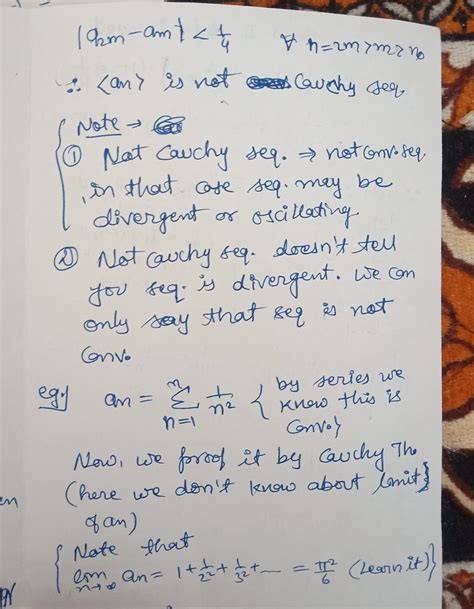 |a2m - am| < 1/4 ∀ n=2m>m≥n0
∴ <an> is not Cauchy seq.
Note →
① Not Cauchy seq. ⇒ not conv. seq
, in that case seq. may be
divergent or oscillating
② Not cauchy seq. doesn't tell
you seq. is divergent. We can
only say that seq is not
Conv.
eg:) an = Σ_{n=1}^{n} 1/n² { by series we
know this is
Conv.}
Now, we proof it by Cauchy Th
(here we don't know about limit}
of an)
{ Note that
lim_{n→∞} an = 1 + 1/2² + 1/3² + --- = π²/6 (Learn it)}